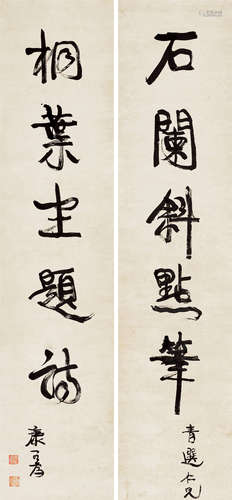 石闌斜點筆
青選仁兄
桐葉坐題詩
康有為